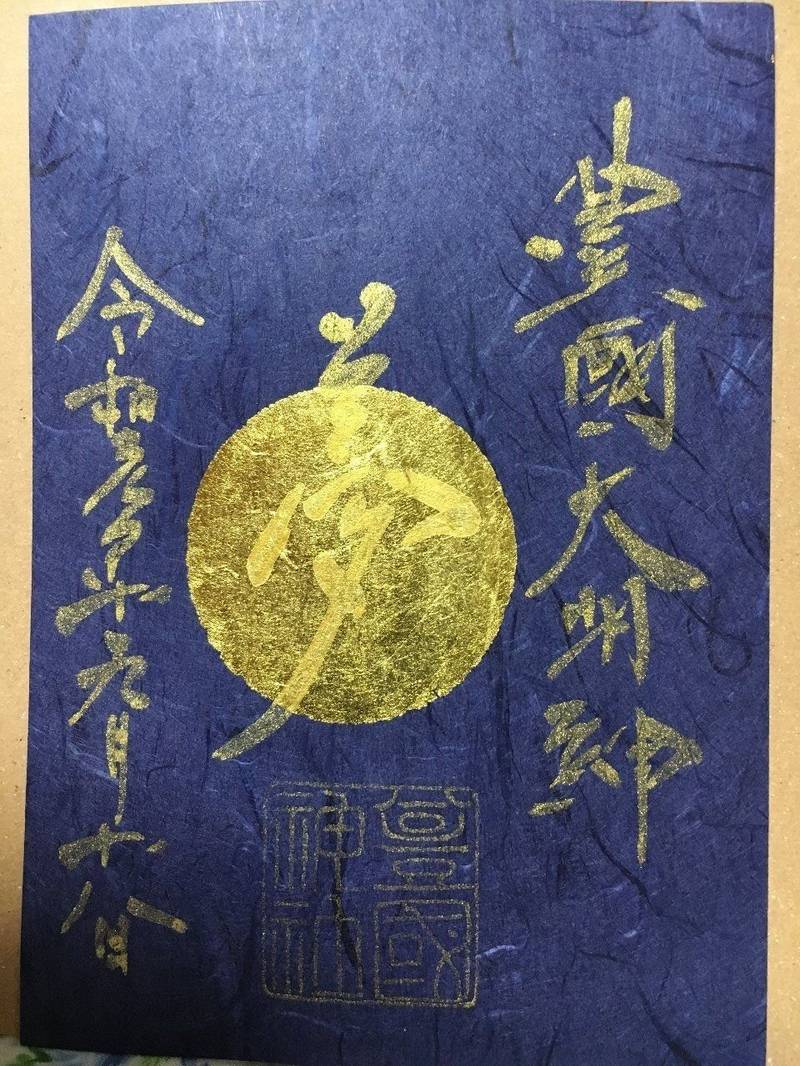 豐國大明神
夢
令和参年元月十八日
豊國
神社